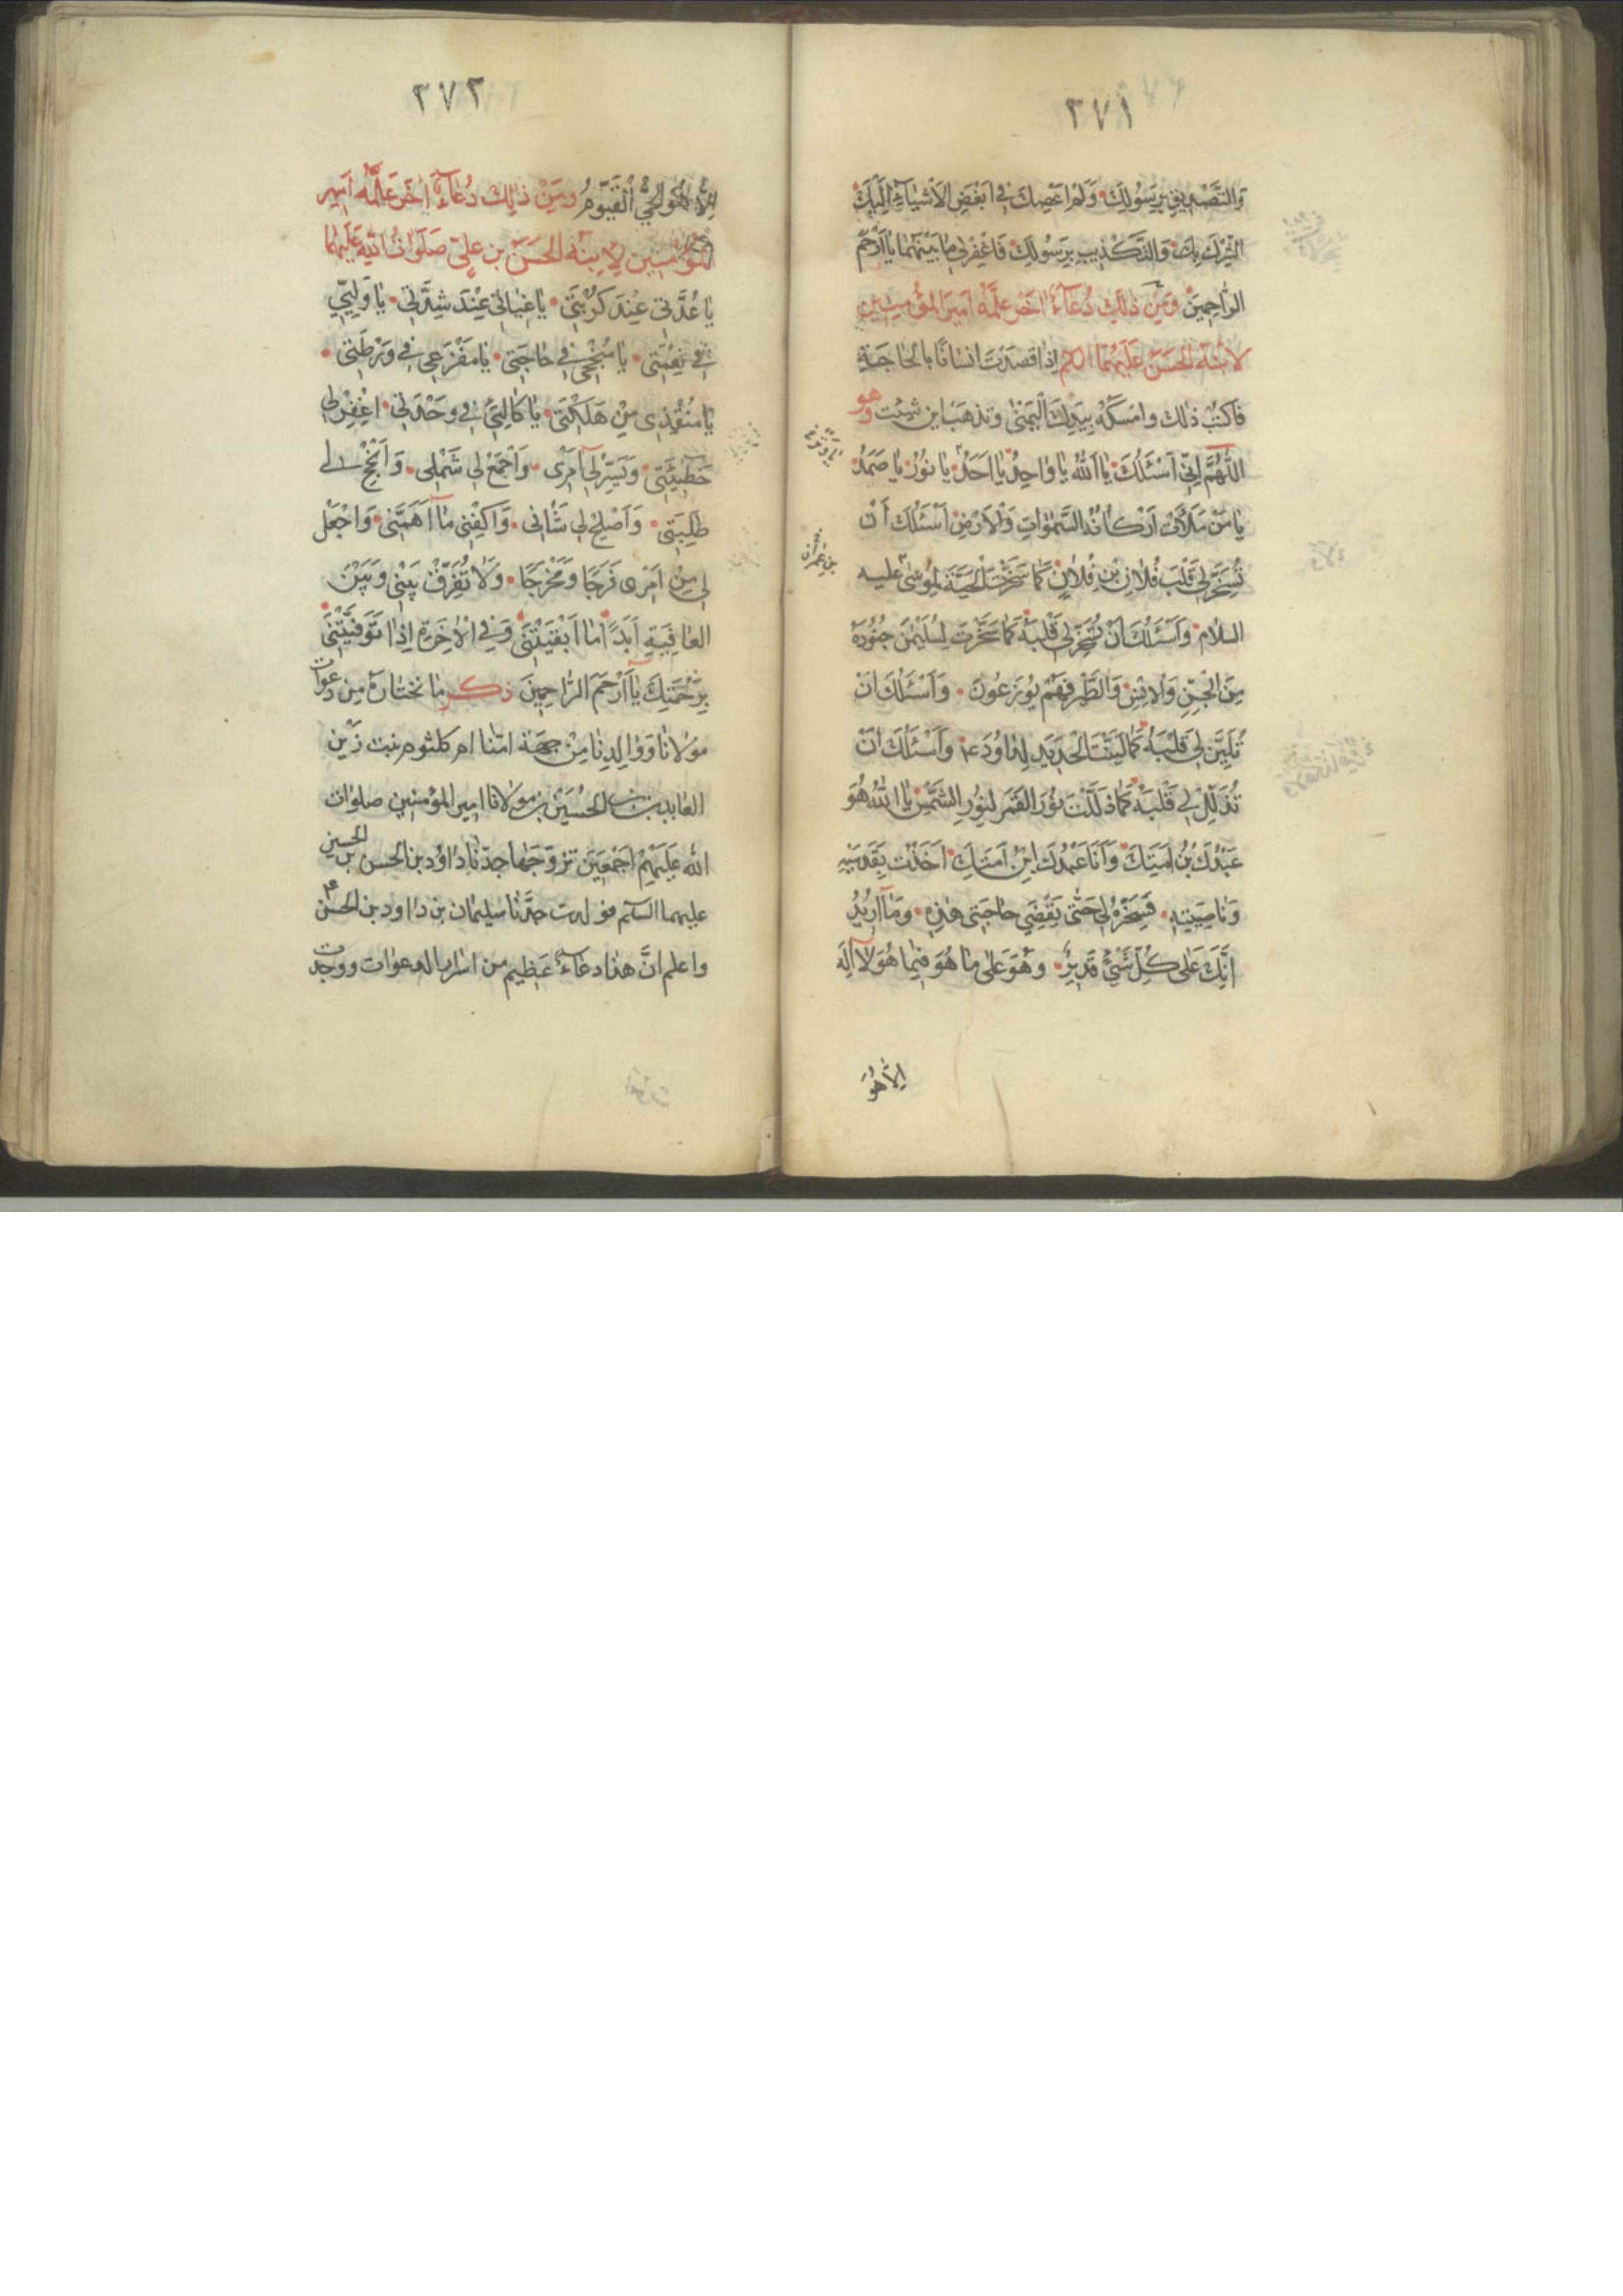 ٢٧١
وَالتَّصْدِيقِ بِرَسُولِكَ وَلَمْ اَعْصِكَ فِى اَبْغَضِ الْاَشْيَاءِ اِلَيْكَ
الشِّرْكِ بِكَ وَالتَّكْذِيبِ بِرَسُولِكَ فَاغْفِرْ لِى مَا بَيْنَهُمَا يَا اَرْحَمَ
الرَّاحِمِينَ وَمِنْ ذٰلِكَ دُعَاءٌ اٰخَرُ عَلَّمَهُ اَمِيرُ الْمُؤْمِنِينَ
لِابْنِهِ الْحَسَنِ عَلَيْهِمَا السلم اِذَا قَصَدْتَ اِنْسَانًا بِالْحَاجَةِ
فَاكْتُبْ ذٰلك وامسكه بِيَدِكَ الْيُمْنٰى وتذهب اين شِئْتَ وهو
اَللّٰهُمَّ اِنِّى اَسْئَلُكَ يَا اَللّٰهُ يَا وَاحِدُ يَا اَحَدُ يَا نُورُ يَا صَمَدُ
يَا مَنْ مَلَأَتْ اَرْكَانُهُ السَّمٰوَاتِ وَالْاَرْضِ اَسْئَلُكَ اَنْ
تُسَخِّرَ لِى قَلْبَ فُلَانِ بْنِ فُلَانٍ كَمَا سَخَّرْتَ الْحَيَّةَ لِمُوسٰى عليه
السلام وَاَسْئَلُكَ اَنْ تُسَخِّرَ لِى قَلْبَهُ كَمَا سَخَّرْتَ لِسُلَيْمٰنَ جُنُودَهُ
مِنَ الْجِنِّ وَالْاِنْسِ وَالطَّيْرِ فَهُمْ يُوزَعُونَ وَاَسْئَلُكَ اَنْ
تُلَيِّنَ لِى قَلْبَهُ كَمَا لَيَّنْتَ الْحَدِيدَ لِدَاوُدَ ع وَاَسْئَلُكَ اَنْ
تُذَلِّلَ لِى قَلْبَهُ كَمَا ذَلَّلْتَ نُورَ الْقَمَرِ لِنُورِ الشَّمْسِ يَا اَللّٰهُ هُوَ
عَبْدُكَ بْنُ اَمَتِكَ وَاَنَا عَبْدُكَ ابْنُ اَمَتِكَ اَخَذْتَ بِقَدَمَيْهِ
وَنَاصِيَتِهِ فَسَخِّرْهُ لِى حَتّٰى يَقْضِىَ حَاجَتِى هٰذِهِ وَمَا اُرِيدُ
اِنَّكَ عَلٰى كُلِّ شَىْءٍ قَدِيرٌ وَهُوَ عَلٰى مَا هُوَ فِيمَا هُوَ لَا اِلٰهَ
اِلَّا هُوَ
بن عمران
٢٧٢
اِلَّا هُوَ الْحَىُّ الْقَيُّومُ وَمِنْ ذٰلِكَ دُعَاءٌ اٰخَرُ عَلَّمَهُ اَمِيرُ
الْمُؤْمِنِين لِابْنِهِ الْحَسَنِ بن عَلِىٍّ صَلَوَاتُ اللّٰهِ عَلَيْهِمَا
يَا عُدَّتِى عِنْدَ كُرْبَتِى يَا غِيَاثِى عِنْدَ شِدَّتِى يَا وَلِيِّى
فِى نِعْمَتِى يَا مُنْجِحِى فِى حَاجَتِى يَا مَفْزَعِى فِى وَرْطَتِى
يَا مُنْقِذِى مِنْ هَلَكَتِى يَا كَالِئِى فِى وَحْدَتِى اِغْفِرْ لِى
خَطِيئَتِى وَيَسِّرْ لِى اَمْرِى وَاجْمَعْ لِى شَمْلِى وَاَنْجِحْ لى
طَلِبَتِى وَاَصْلِحْ لِى شَانِى وَاكْفِنِى مَا اَهَمَّنِى وَاجْعَلْ
لِى مِنْ اَمْرِى فَرَجًا وَمَخْرَجًا وَلَا تُفَرِّقْ بَيْنِى وَبَيْنَ
الْعَافِيَةِ اَبَدًا مَا اَبْقَيْتَنِى وَفِى الْاٰخِرَةِ اِذَا تَوَفَّيْتَنِى
بِرَحْمَتِكَ يَا اَرْحَمَ الرَّاحِمِينَ ذكر ما نختاره من دعوات
مولانا ووالدنا مِنْ جهة امّنا ام كلثوم بنت زين
العابدين بن الحُسَيْن بن مولانا امير المؤمنين صلوات
اللّٰه عَلَيْهِمْ اَجْمَعِينَ تزوّجها جدّنا داوُد بن الحسن بن الحسين
عليهما السلم فولدت جدّنا سليمان بن داود بن الحسن
واعلم انَّ هذا دعاءٌ عَظِيم من اسرار الدعوات ووجدت